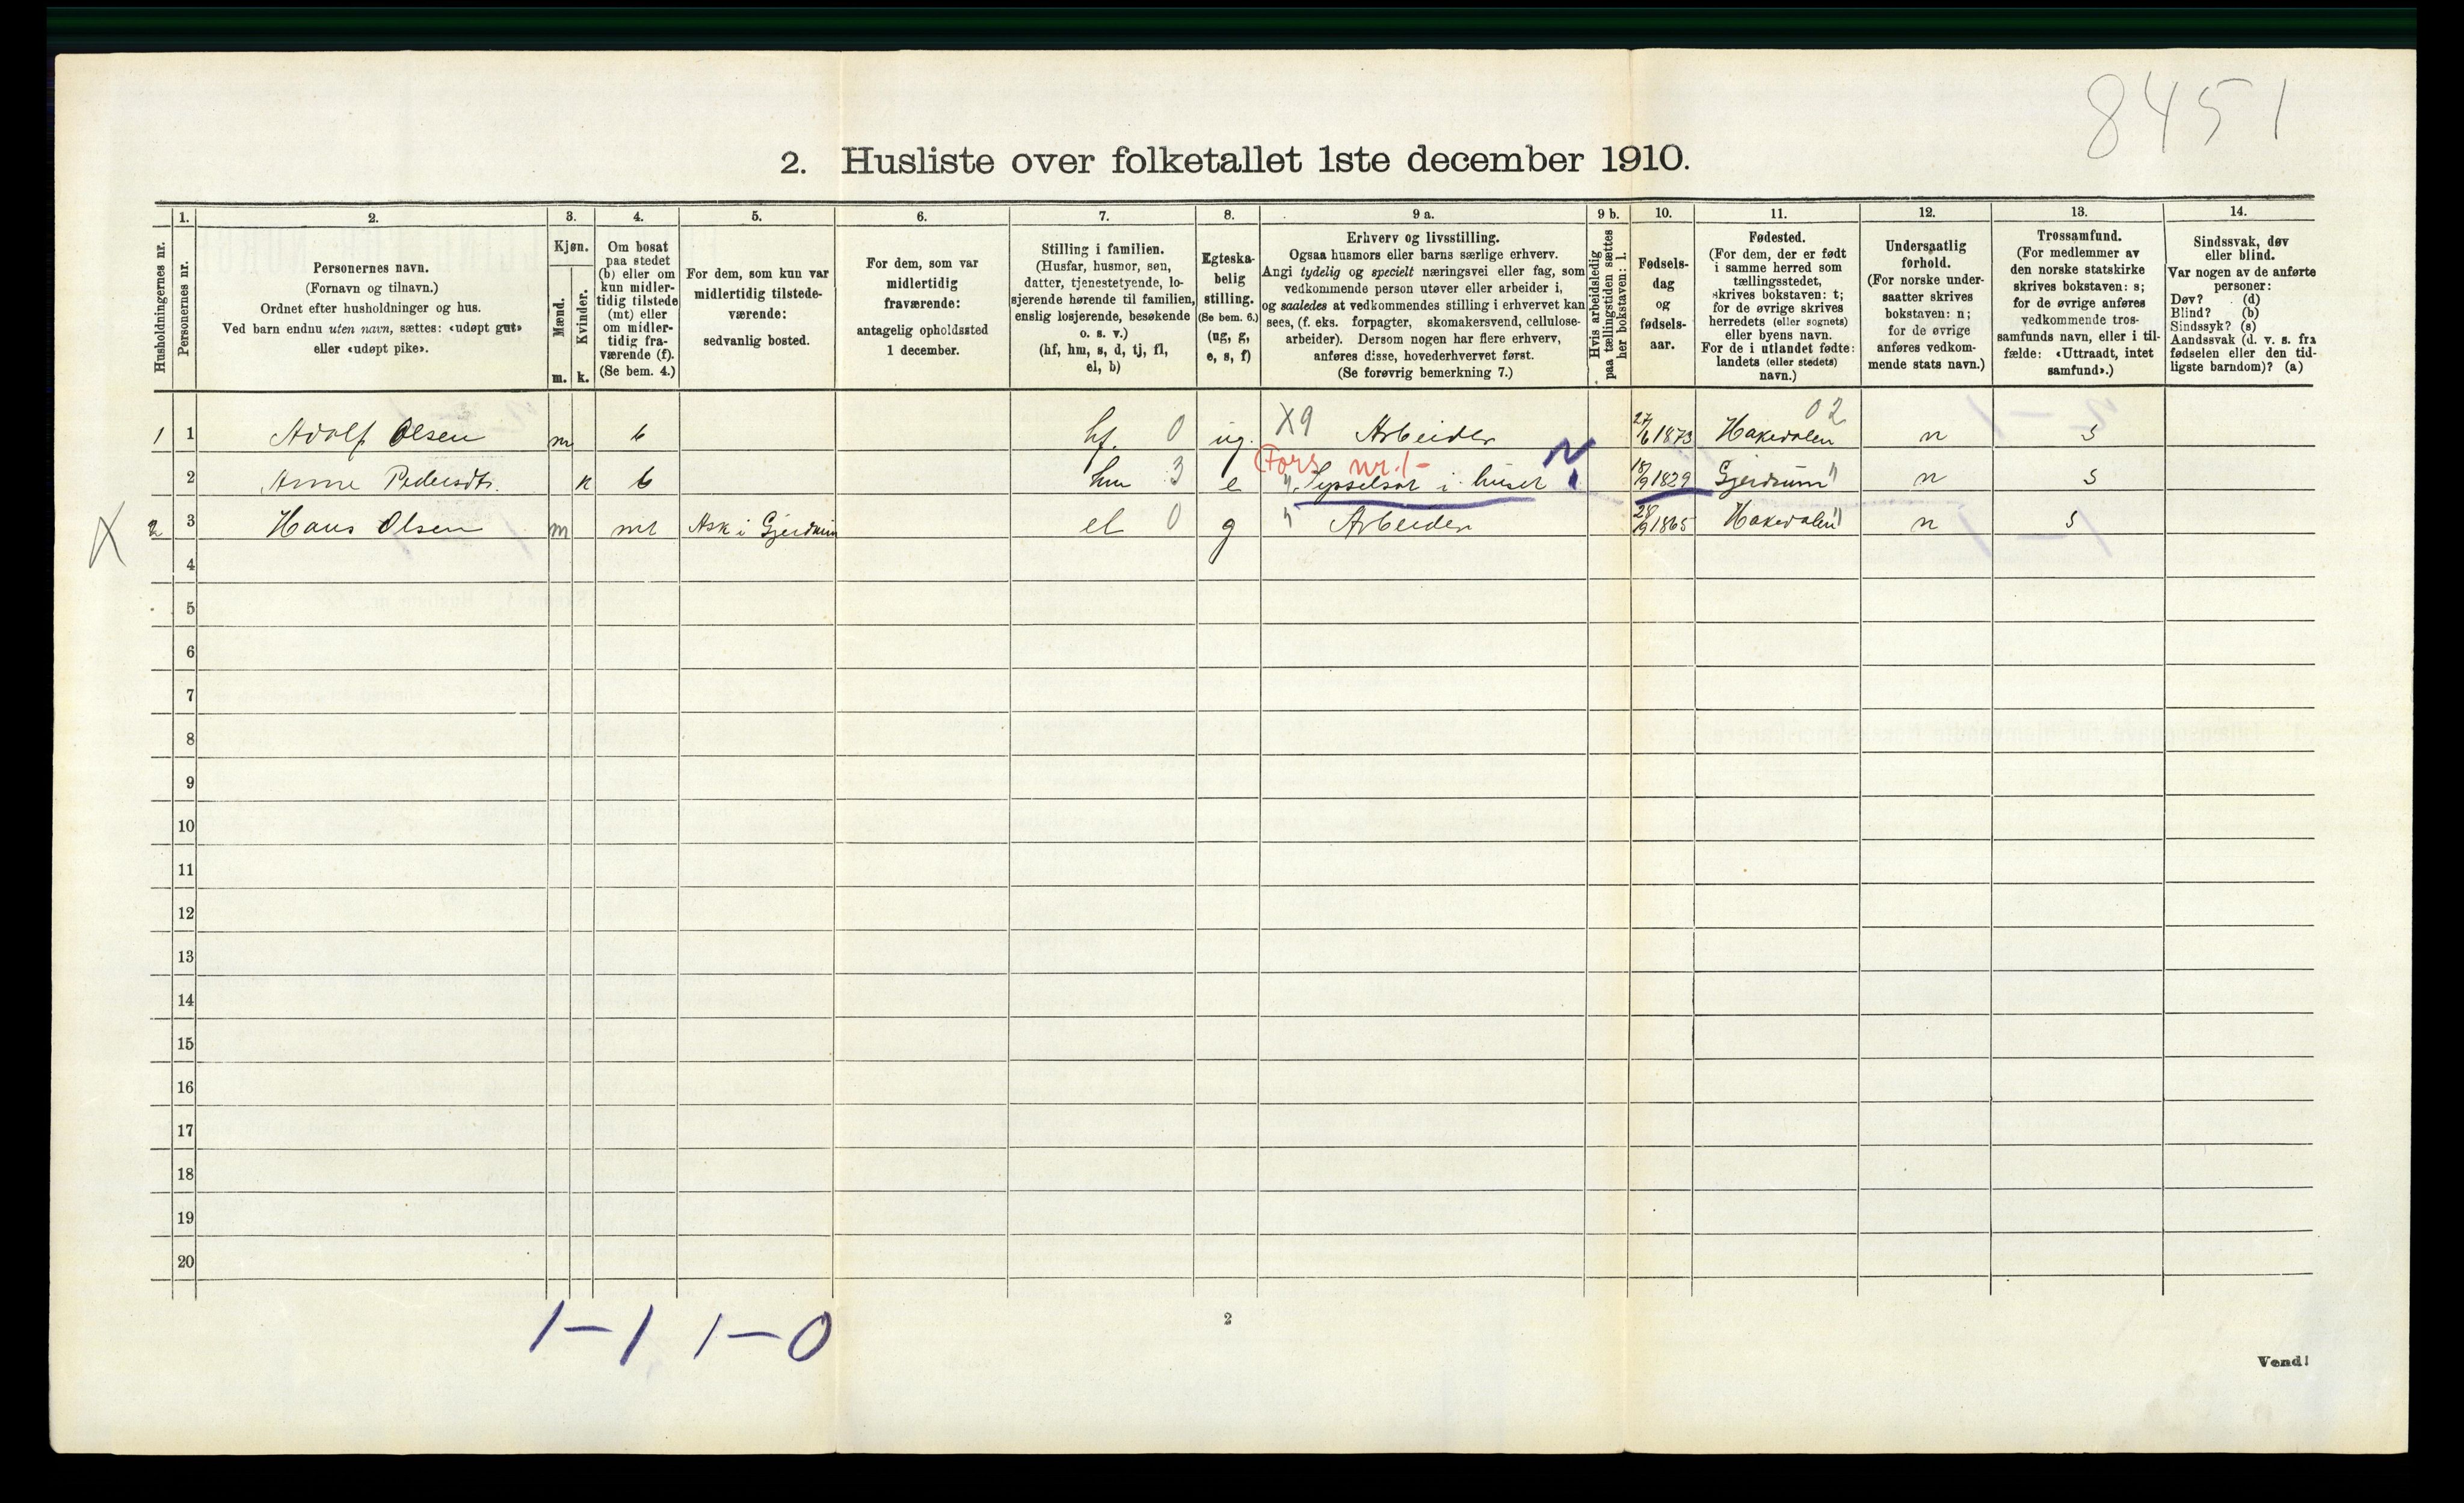 8451
2. Husliste over folketallet 1ste december 1910.
Husholdningernes nr.
1.
Personernes nr.
2.
Personernes navn.
(Fornavn og tilnavn.)
Ordnet efter husholdninger og hus.
Ved barn endnu uten navn, sættes: «udøpt gut»
eller «udøpt pike».
3.
Kjøn.
Mænd.
Kvinder.
m. k.
4.
Om bosat
paa stedet
(b) eller om
kun midler-
tidig tilstede
(mt) eller
om midler-
tidig fra-
værende (f).
(Se bem. 4.)
5.
For dem, som kun var
midlertidig tilstede-
værende:
sedvanlig bosted.
6.
For dem, som var
midlertidig
fraværende:
antagelig opholdssted
1 december.
7.
Stilling i familien.
(Husfar, husmor, søn,
datter, tjenestetyende, lo-
sjerende hørende til familien,
enslig losjerende, besøkende
o. s. v.)
(hf, hm, s, d, tj, fl,
el, b)
8.
Egteska-
belig
stilling.
(Se bem. 6.)
(ug, g,
e, s, f)
9 a.
Erhverv og livsstilling.
Ogsaa husmors eller barns særlige erhverv.
Angi tydelig og specielt næringsvei eller fag, som
vedkommende person utøver eller arbeider i,
og saaledes at vedkommendes stilling i erhvervet kan
sees, (f. eks. forpagter, skomakersvend, cellulose-
arbeider). Dersom nogen har flere erhverv,
anføres disse, hovederhvervet først.
(Se forøvrig bemerkning 7.)
9 b.
Hvis arbeidsledig
paa tællingstiden sættes
her bokstaven: l.
10.
Fødsels-
dag
og
fødsels-
aar.
11.
Fødested.
(For dem, der er født
i samme herred som
tællingsstedet,
skrives bokstaven: t;
for de øvrige skrives
herredets (eller sognets)
eller byens navn.
For de i utlandet fødte:
landets (eller stedets)
navn.)
12.
Undersaatlig
forhold.
(For norske under-
saatter skrives
bokstaven: n;
for de øvrige
anføres vedkom-
mende stats navn.)
13.
Trossamfund.
(For medlemmer av
den norske statskirke
skrives bokstaven: s;
for de øvrige anføres
vedkommende tros-
samfunds navn, eller i til-
fælde: «Uttraadt, intet
samfund».)
14.
Sindssvak, døv
eller blind.
Var nogen av de anførte
personer:
Døv? (d)
Blind? (b)
Sindssyk? (s)
Aandssvak (d. v. s. fra
fødselen eller den tid-
ligste barndom)? (a)
1 1 Adolf Olsen m b hf. 0 ug. X9 Arbeider 27/6 1873 Hakedalen 02 n s
Fors nr. 1 -
2 Anne Pedersdtr. k b hm 3 e " Sysselsat i huset 18/9 1829 Gjerdrum " n s
X 2 3 Hans Olsen m mt Ask i Gjerdrum el 0 g " Arbeider 28/9 1865 Hakedalen " n s
4
5
6
7
8
9
10
11
12
13
14
15
16
17
18
19
20
1-1 1-0
2
Vend!